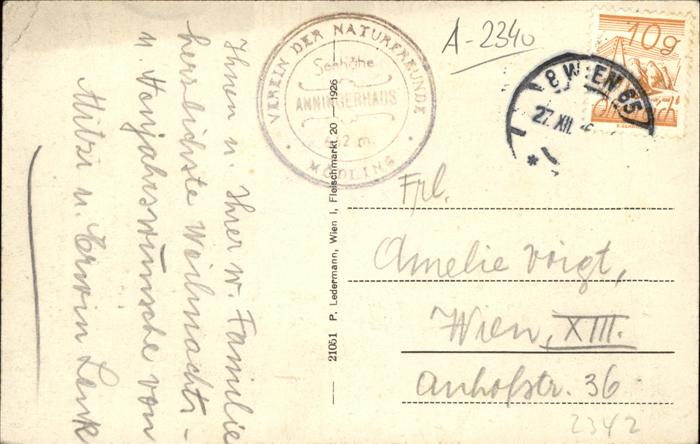 Ihnen u. Ihrer w. Familie
herzlichste Weihnachts-
u. Neujahrswünsche von
Mitzi u. Erwin Lenk
VEREIN DER NATURFREUNDE
Seehöhe
ANNINGERHAUS
m.
MÖDLING
21051 P. Ledermann, Wien I, Fleischmarkt 20 — 1926
A-2340
10g
8 WIEN 65
27. XII.
Frl.
Amelie Voigt,
Wien, XIII.
Anhofstr. 36
2342